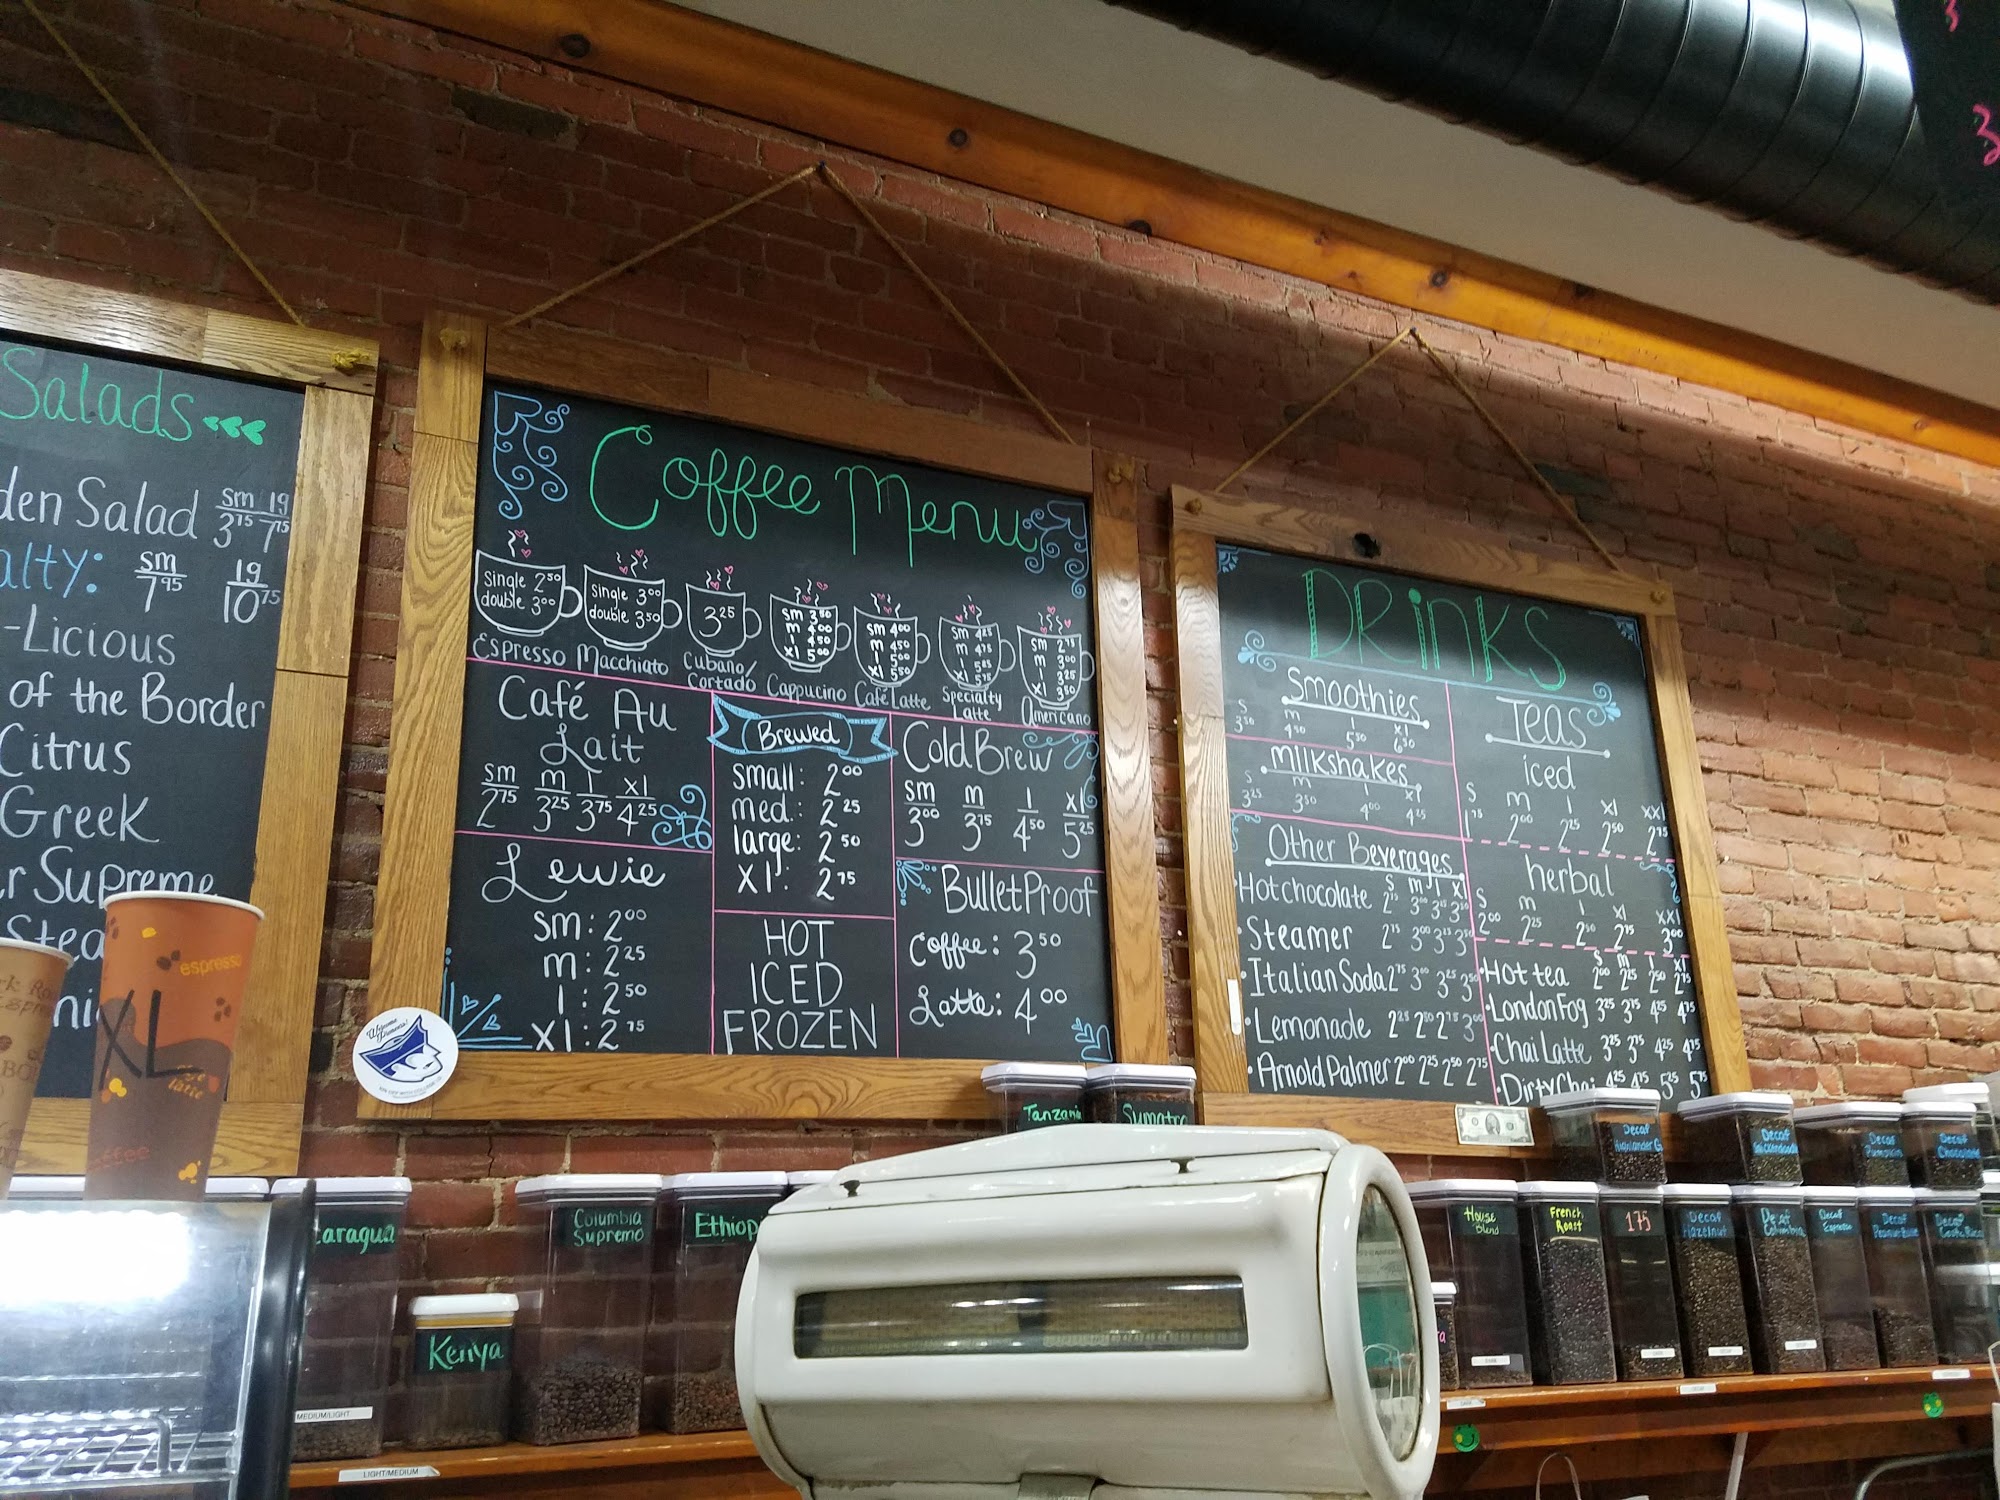 Salads
den Salad sm 3.75 lg 7.75
alty: sm 7.95 lg 10.75
-Licious
of the Border
Citrus
Greek
r Supreme
Stea
Coffee Menu
single 2.50
double 3.00
Espresso
single 3.00
double 3.50
Macchiato
3.25
Cubano/
Cortado
sm 3.50
m 4.00
l 4.50
xl 5.00
Cappucino
sm 4.00
m 4.50
l 5.00
xl 5.50
Café Latte
sm 4.25
m 4.75
l 5.25
xl 5.75
Specialty
Latte
sm 2.75
m 3.00
l 3.25
xl 3.50
Americano
Café Au
Lait
sm m l xl
2.75 3.25 3.75 4.25
Lewie
sm: 2.00
m: 2.25
l: 2.50
xl: 2.75
Brewed
small: 2.00
med.: 2.25
large: 2.50
xl: 2.75
HOT
ICED
FROZEN
Cold Brew
sm m l xl
3.00 3.75 4.50 5.25
BulletProof
Coffee: 3.50
Latte: 4.00
DRiNKS
Smoothies
S m l xl
3.50 4.50 5.50 6.50
Milkshakes
S m l xl
3.25 3.50 4.00 4.25
Other Beverages
S m l xl
Hot chocolate 2.75 3.00 3.25 3.50
Steamer 2.75 3.00 3.25 3.50
Italian Soda 2.75 3.00 3.25 3.50
Lemonade 2.25 2.50 2.75 3.00
Arnold Palmer 2.00 2.25 2.50 2.75
TEAS
iced
S m l xl xxl
1.75 2.00 2.25 2.50 2.75
herbal
S m l xl xxl
2.00 2.25 2.50 2.75 3.00
S m l xl
Hot tea 2.00 2.25 2.50 2.75
London Fog 3.25 3.75 4.25 4.75
Chai Latte 3.25 3.75 4.25 4.75
Dirty Chai 4.25 4.75 5.25 5.75
espresso
XL
latte
coffee
Tanzania
Sumatra
Decaf
Highlander G
Decaf
Decaf
Pumpkin
Decaf
Chocolate
aragua
Columbia
Supremo
Ethiop
Kenya
House
Blend
French
Roast
175
Decaf
Hazelnut
Decaf
Columbia
Decaf
Espresso
Decaf
Decaf
MEDIUM/LIGHT
LIGHT/MEDIUM